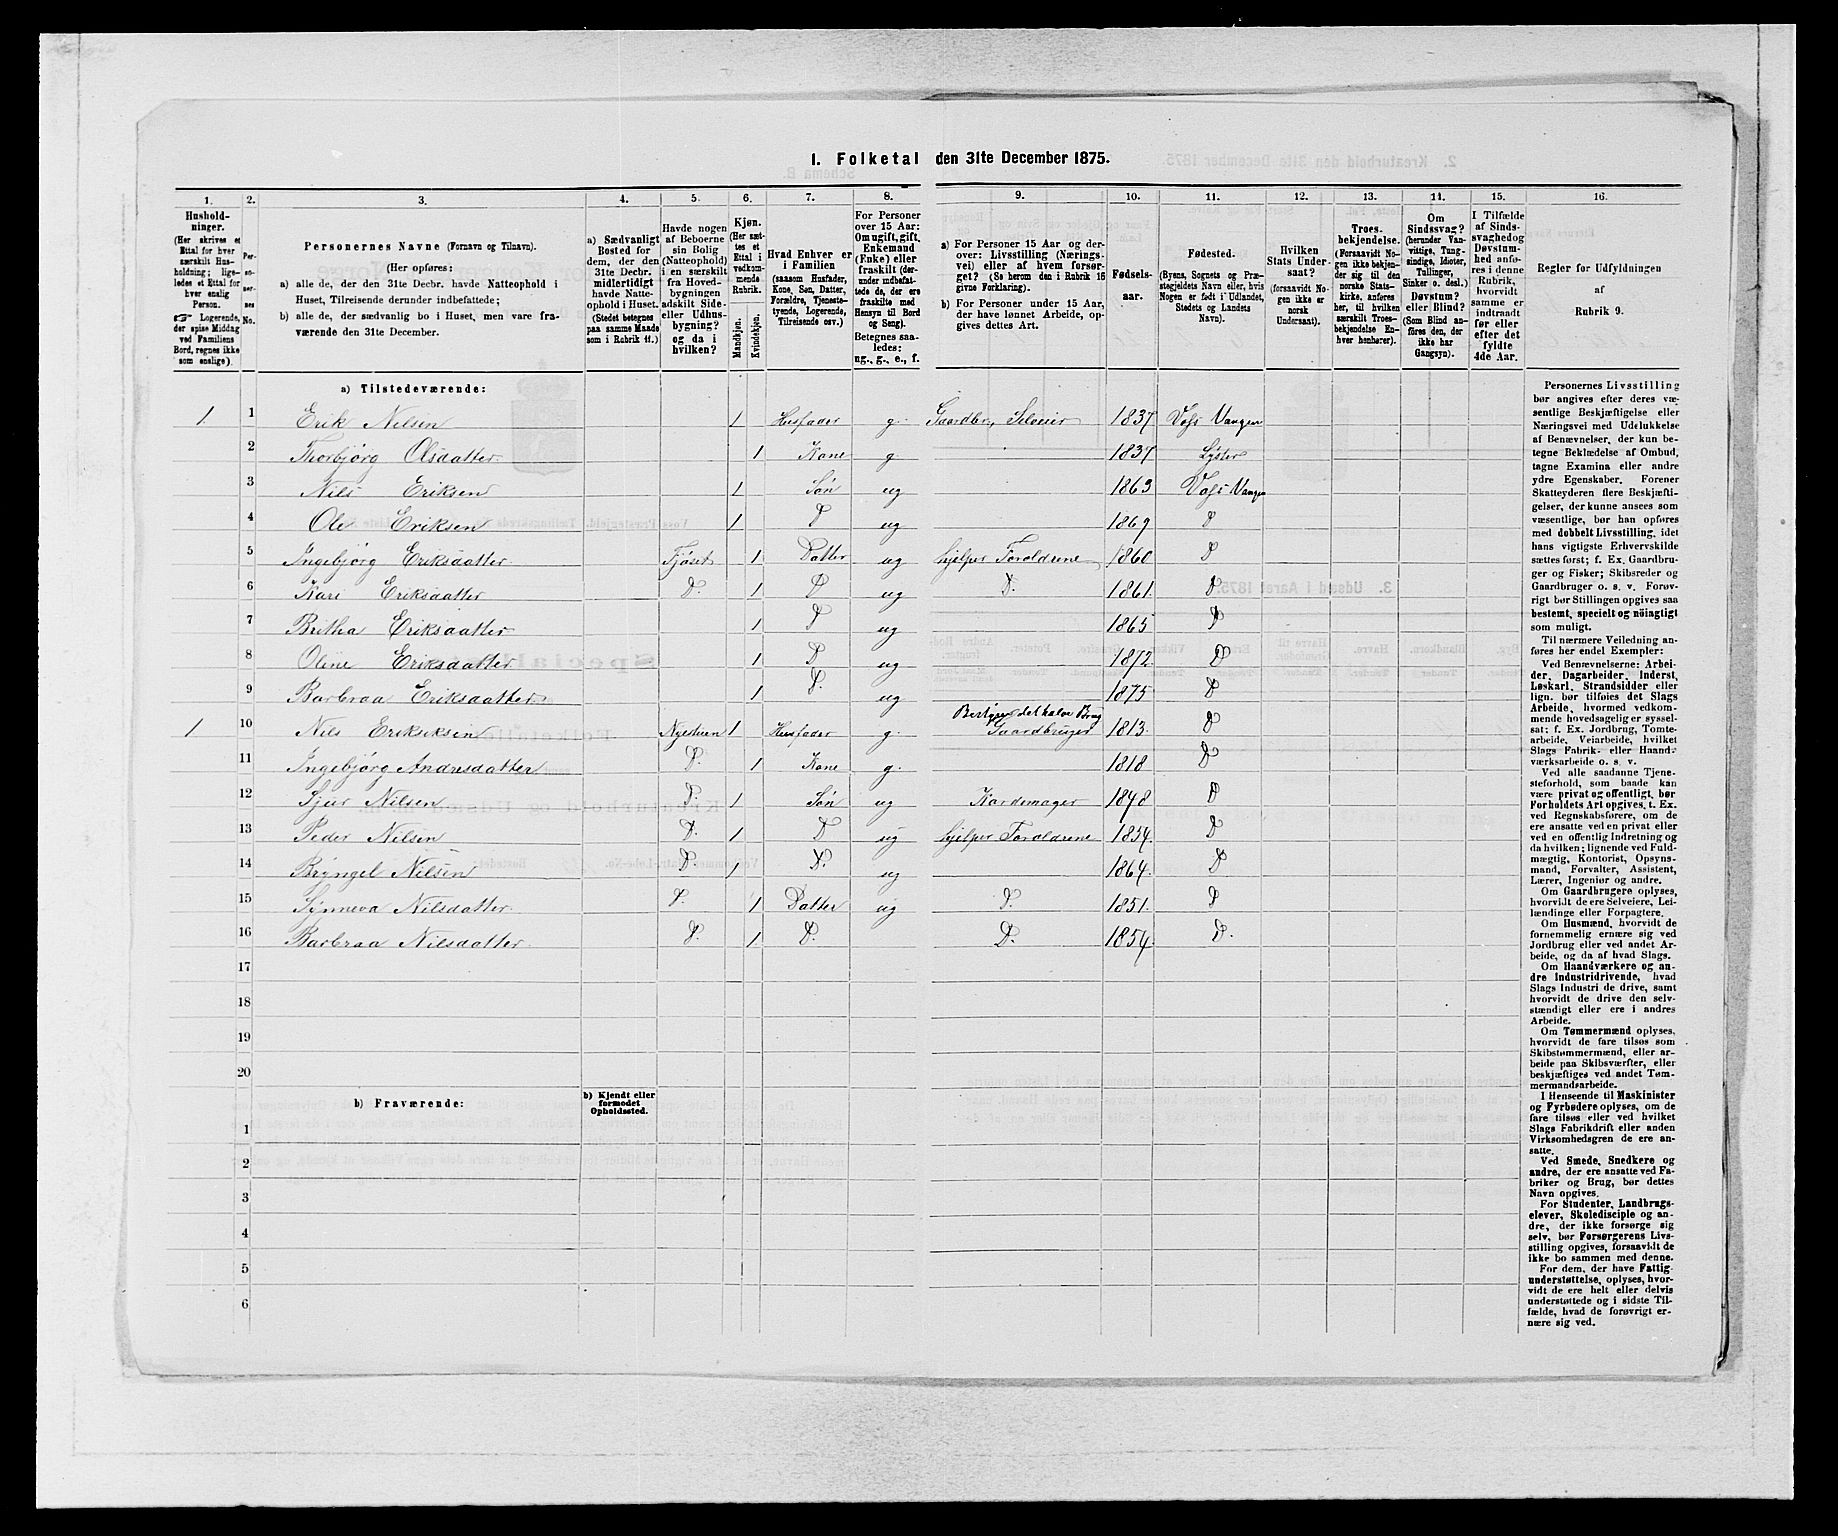 1. Folketal den 31te December 1875.
1. 2. 3. 4. 5. 6. 7. 8. 9. 10. 11. 12. 13. 14. 15. 16.
Hushold-
ninger.
(Her skrives et
Ettal for hver
særskilt Hus-
holdning; lige-
ledes et Ettal for
hver enslig
Person.
☞ Logerende,
der spise Middag
ved Familiens
Bord, regnes ikke
som enslige).
Per-
so-
ner-
nes
No.
Personernes Navne (Fornavn og Tilnavn).
(Her opføres:
a) alle de, der den 31te Decbr. havde Natteophold i
Huset, Tilreisende derunder indbefattede;
b) alle de, der sædvanlig bo i Huset, men vare fra-
værende den 31te December.
a) Sædvanligt
Bosted for
dem, der den
31te Decbr.
midlertidigt
havde Natte-
ophold i Huset.
(Stedet betegnes
paa samme Maade
som i Rubrik 11.)
Havde nogen
af Beboerne
sin Bolig
(Natteophold)
i en særskilt
fra Hoved-
bygningen
adskilt Side-
eller Udhus-
bygning?
og da i
hvilken?
Kjøn.
(Her sæt-
tes et
Ettal i
vedkom-
mende
Rubrik.
Mandkjøn.
Kvindekjøn.
Hvad Enhver er
i Familien
(saasom Husfader,
Kone, Søn, Datter,
Forældre, Tjeneste-
tyende, Logerende,
Tilreisende osv.)
For Personer
over 15 Aar:
Om ugift, gift,
Enkemand
(Enke) eller
fraskilt (der-
under indbefat-
tede de, der ere
fraskilte med
Hensyn til Bord
og Seng).
Betegnes saa-
ledes:
ug., g., e., f.
a) For Personer 15 Aar og der-
over: Livsstilling (Nærings-
vei) eller af hvem forsør-
get? (Se herom den i Rubrik 16
givne Forklaring).
b) For Personer under 15 Aar,
der have lønnet Arbeide, op-
gives dettes Art.
Fødsels-
aar.
Fødested.
(Byens, Sognets og Præ-
stegjeldets Navn eller, hvis
Nogen er født i Udlandet,
Stedets og Landets
Navn).
Hvilken
Stats Under-
saat?
(forsaavidt No-
gen ikke er
norsk
Undersaat).
Troes-
bekjendelse.
(Forsaavidt No-
gen ikke bekjen-
der sig til den
norske Stats-
kirke, anføres
her, til hvilken
særskilt Troes-
bekjendelse En-
hver henhører).
Om
Sindssvag?
(herunder Van-
vittige, Tung-
sindige, Idioter,
Tullinger,
Sinker o. desl.)
Døvstum?
eller Blind?
(Som Blind an-
føres den, der
ikke har
Gangsyn).
I Tilfælde
af Sinds-
svaghed og
Døvstum-
hed anfø-
res i denne
Rubrik,
hvorvidt
samme er
indtraadt
før eller
efter det
fyldte
4de Aar.
Regler for Udfyldningen
af
Rubrik 9.
a) Tilstedeværende:
1. 1 Erik Nilsen 1 Husfader g. Gaardbr, Selveier 1837 Voss Vangen
2 Thorbjörg Olsdatter 1 Kone g. 1837 Lyster
3 Nils Eriksen 1 Søn ug 1863 Voss Vangen
4 Ole Eriksen 1 D ug 1869 D
5 Ingebjörg Eriksdatter Fjöset 1 Datter ug hjelper Foreldrene 1860 D
6 Kari Eriksdatter D. 1 D ug D. 1861. D
7 Britha Eriksdatter 1 D ug 1865 D
8 Oline Eriksdatter 1 D ug 1872 D
9 Barbraa Eriksdatter 1 D. ug 1875 D
Bestyrer det halve Brug
1 10 Nils Eriksen Nyestuen 1 Husfader g. Gaardbruger 1813. D
11 Ingebjörg Andersdatter D. 1 Kone g. 1818 D
12 Sjur Nilsen D. 1 Søn ug Kardemager 1848 D
13 Peder Nilsen D. 1 D ug hjelper Foreldrene 1854. D
14 Bryngel Nilsen D. 1 D. ug 1864. D
15 Synneva Nilsdatter D. 1 Datter ug D. 1851. D
16 Barbraa Nilsdatter D. 1 D. D. 1854. D.
17
18
19
20
b) Fraværende:
b) Kjendt eller
formodet
Opholdssted.
1
2
3
4
5
6
Personernes Livsstilling
bør angives efter deres væ-
sentlige Beskjæftigelse eller
Næringsvei med Udelukkelse
af Benævnelser, der kun be-
tegne Beklædelse af Ombud,
tagne Examina eller andre
ydre Egenskaber. Forener
Skatteyderen flere Beskjæfti-
gelser, der kunne ansees som
væsentlige, bør han opføres
med dobbelt Livsstilling, idet
hans vigtigste Erhvervskilde
sættes først; f. Ex. Gaardbru-
ger og Fisker; Skibsreder og
Gaardbruger o. s. v. Forøv-
rigt bør Stillingen opgives saa
bestemt, specielt og nöiagtigt
som muligt.
Til nærmere Veiledning an-
føres her endel Exempler:
Ved Benævnelserne: Arbei-
der, Dagarbeider, Inderst,
Løskarl, Strandsidder eller
lign. bør tilføies det Slags
Arbeide, hvormed vedkom-
mende hovedsagelig er syssel-
sat; f. Ex. Jordbrug, Tomte-
arbeide, Veiarbeide, hvilket
Slags Fabrik- eller Haand-
værksarbeide o. s. v.
Ved alle saadanne Tjene-
steforhold, som baade kan
være privat og offentligt, bør
Forholdets Art opgives, t. Ex.
ved Regnskabsførere, om de
ere ansatte ved en privat eller
ved en offentlig Indretning og
da hvilken; lignende ved Fuld-
mægtig, Kontorist, Opsyns-
mand, Forvalter, Assistent,
Lærer, Ingeniør og andre.
Om Gaardbrugere oplyses,
hvorvidt de ere Selveiere, Lei-
lændinge eller Forpagtere.
Om Husmænd, hvorvidt de
fornemmelig ernære sig ved
Jordbrug eller ved andet Ar-
beide, og da af hvad Slags.
Om Haandværkere og an-
dre Industridrivende, hvad
Slags Industri de drive, samt
hvorvidt de drive den selv-
stændigt eller ere i andres
Arbeide.
Om Tømmermænd oplyses,
hvorvidt de fare tilsøs som
Skibstømmermænd, eller ar-
beide paa Skibsværfter, eller
beskjæftiges ved andet Tøm-
mermandsarbeide.
I Henseende til Maskinister
og Fyrbødere oplyses, om de
fare tilsøs eller ved hvilket
Slags Fabrikdrift eller anden
Virksomhedsgren de ere an-
satte.
Ved Smede, Snedkere og
andre, der ere ansatte ved Fa-
briker og Brug, bør dettes
Navn opgives.
For Studenter, Landbrugs-
elever, Skoledisciple og an-
dre, der ikke forsørge sig
selv, bør Forsørgerens Livs-
stilling opgives, forsaavidt de
ikke bo sammen med denne.
For dem, der have Fattig-
understøttelse, oplyses, hvor-
vidt de ere helt eller delvis
understøttede og i sidste Til-
fælde, hvad de forøvrigt er-
nære sig ved.